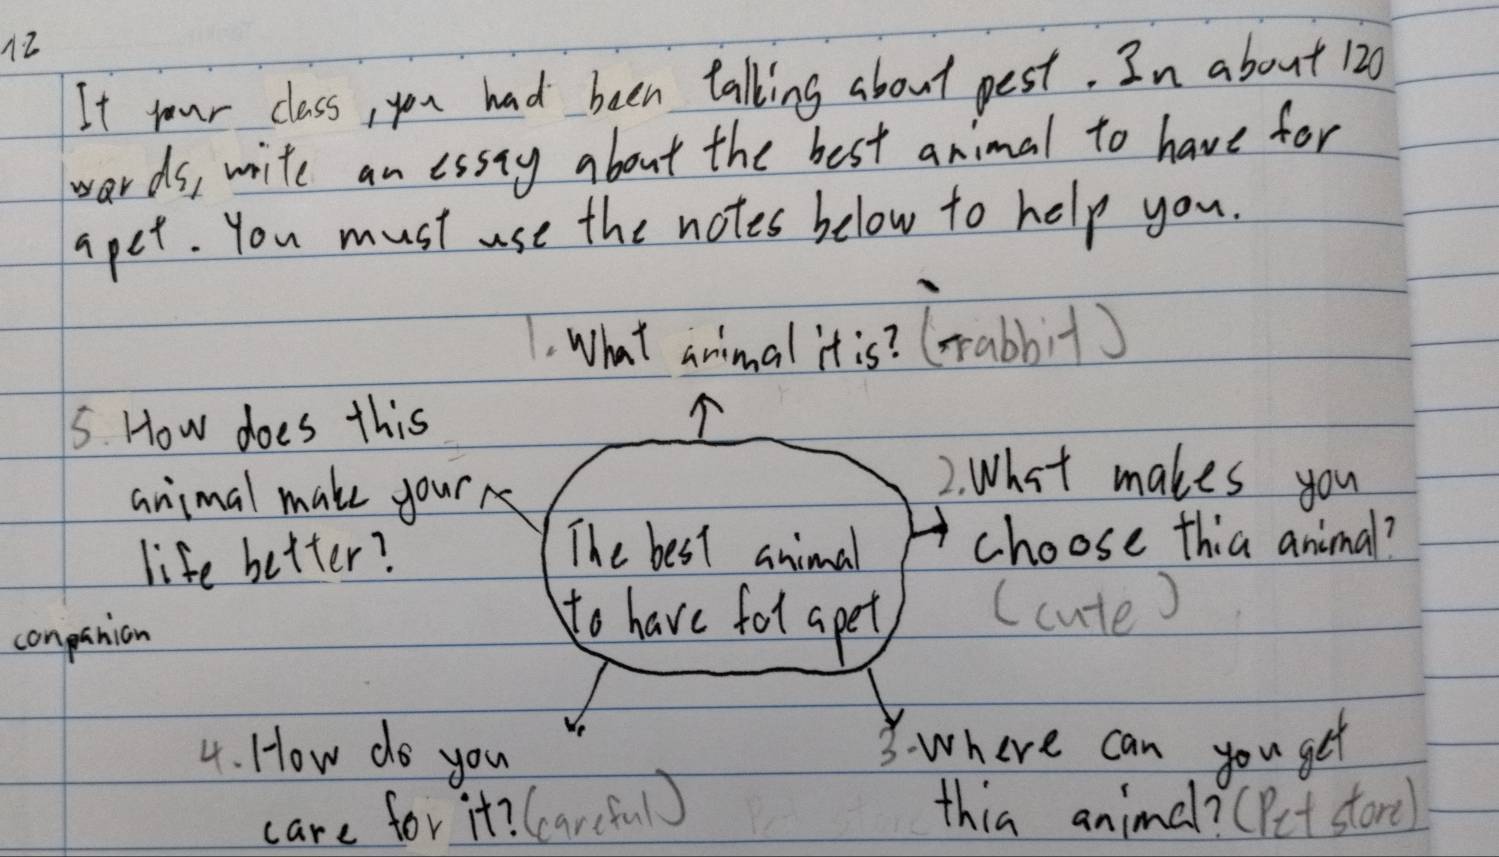 12
It your class, you had been talking about pest. In about 120
words, write an essay about the best animal to have for
apet. You must use the notes below to help you.
1. What animal it is? (rabbit)
5. How does this
animal make your
life better?
companian
The best animal
to have fot apet
2. What makes you
choose thia animal?
(cute)
4. How do you
care for it? (careful)
3. Where can you get
thia animal? (Pet store)